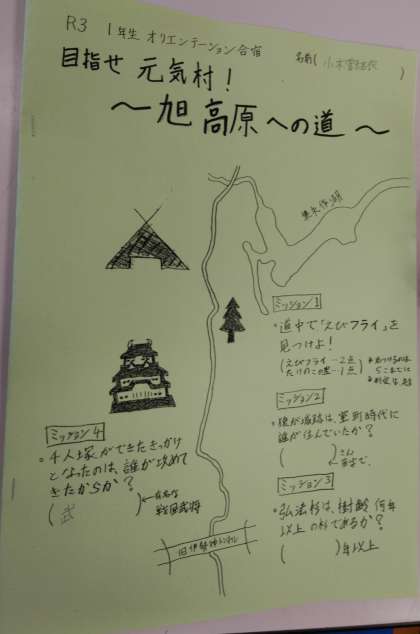 R3 1年生 オリエンテーション合宿
名前( )
目指せ 元気村！
〜旭高原への道〜
奥矢作湖
ミッション1
・道中で「えびフライ」を
見つけよ！
(えびフライ…2点
たけのこの里…1点)
ミッション2
・後が城跡は、室町時代に
誰が住んでいたか？
( )さん
ミッション3
・弘法杉は、樹齢何年
以上の杉であるか？
( )年以上
ミッション4
・千人塚ができたきっかけ
となったのは、誰が攻めて
きたからか？
(武 )
←有名な
戦国武将
旧伊勢神トンネル